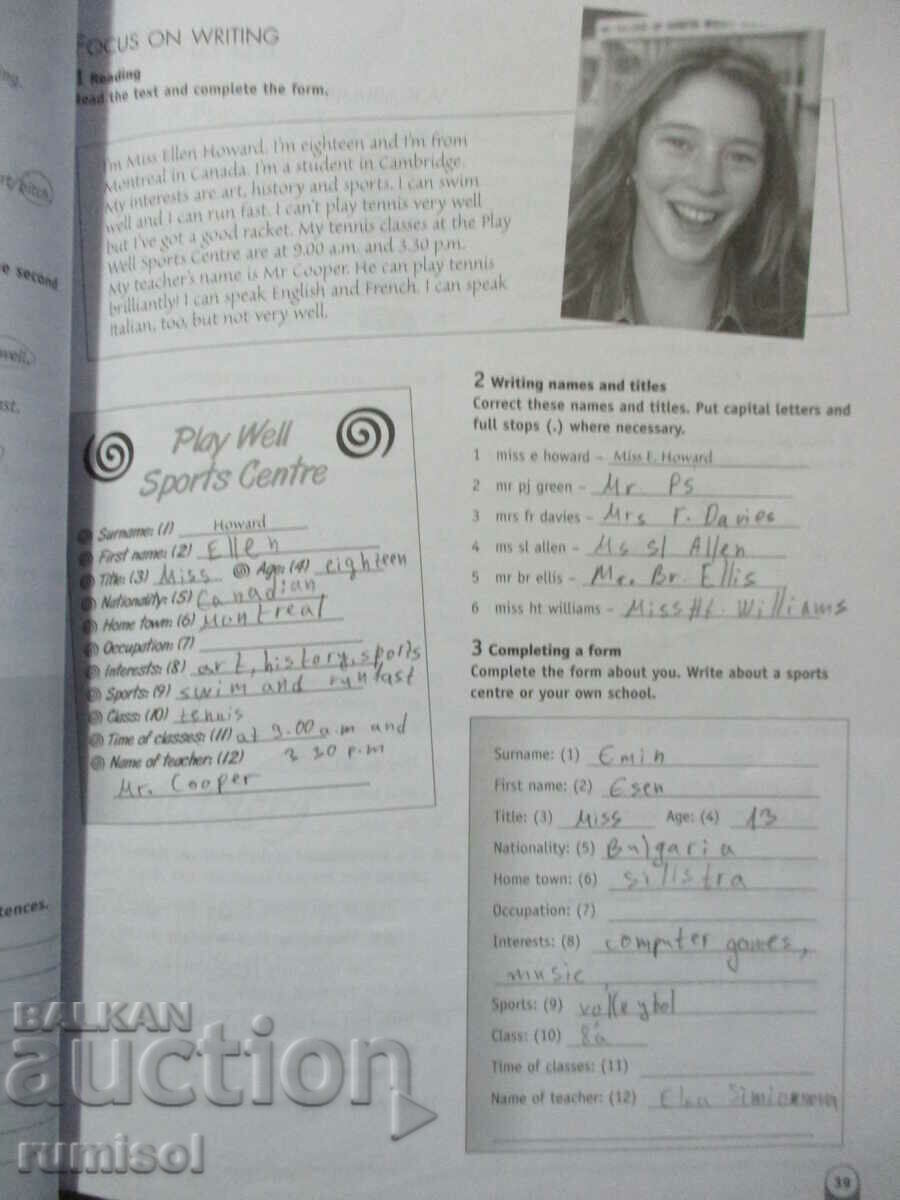 FOCUS ON WRITING
1 Reading
Read the text and complete the form.
I'm Miss Ellen Howard. I'm eighteen and I'm from
Montreal in Canada. I'm a student in Cambridge.
My interests are art, history and sports. I can swim
well and I can run fast. I can't play tennis very well
but I've got a good racket. My tennis classes at the Play
Well Sports Centre are at 9.00 a.m. and 3.30 p.m.
My teacher's name is Mr Cooper. He can play tennis
brilliantly! I can speak English and French. I can speak
Italian, too, but not very well.
e second
well.
st.
tences.
Play Well
Sports Centre
Surname: (1) Howard
First name: (2) Ellen
Title: (3) Miss Age: (4) eighteen
Nationality: (5) Canadian
Home town: (6) Montreal
Occupation: (7)
Interests: (8) art, history, sports
Sports: (9) swim and run fast
Class: (10) tennis
Time of classes: (11) at 9.00 a.m and
3 30 p.m
Name of teacher: (12)
Mr. Cooper
2 Writing names and titles
Correct these names and titles. Put capital letters and
full stops (.) where necessary.
1 miss e howard – Miss E. Howard
2 mr pj green – Mr. PS
3 mrs fr davies – Mrs F. Davies
4 ms sl allen – Ms Sl Allen
5 mr br ellis – Mr. Br. Ellis
6 miss ht williams – Miss Ht. Williams
3 Completing a form
Complete the form about you. Write about a sports
centre or your own school.
Surname: (1) Emin
First name: (2) Esen
Title: (3) Miss Age: (4) 13
Nationality: (5) Bulgaria
Home town: (6) sillstra
Occupation: (7)
Interests: (8) computer games,
music,
Sports: (9) volleybol
Class: (10) 8a
Time of classes: (11)
Name of teacher: (12) Elka
39
BALKAN
auction
rumisol